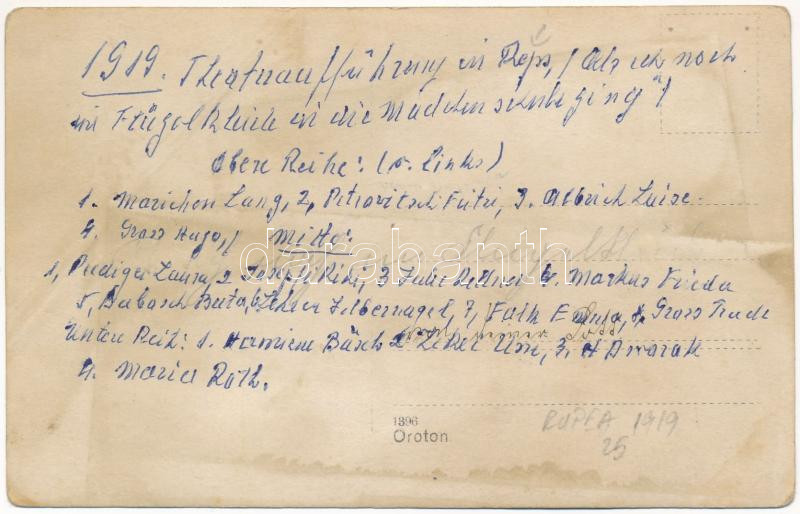 1919. Theateraufführung in Reps, (Als ich noch
im Flügelkleide in die Mädchenschule ging")
Obere Reihe: (v. links)
1. Marichen Lang, 2, Petrovitsch Futzi, 3. Albrich Luise
4. Gross Hugo, / Mitte:
1, Rudiger Laura, 2 Josefi Riki, 3 Julie Kellner 4. Markus Frieda
5, Babosch Berta, 6, Lehrer Zilbernagel, 7, Falk Emma, 8, Gross Trude
Untere Reih: 1. Hermiene Büsch 2 Zekel Irm, 3. H Dworak
4. Maria Roth.
darabanth
1396
Oroton
RUPEA 1919
25